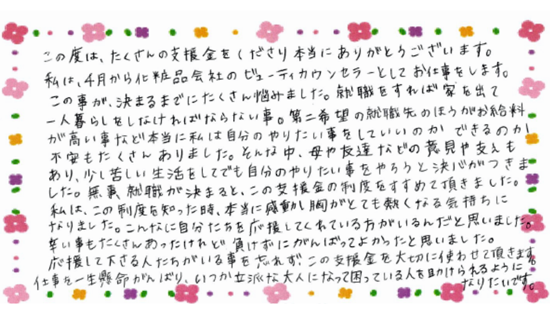 この度は、たくさんの支援金をくださり本当にありがとうございます。
私は、4月から化粧品会社のビューティカウンセラーとしてお仕事をします。
この事が、決まるまでにたくさん悩みました。就職をすれば家を出て
一人暮らしをしなければならない事。第二希望の就職先のほうがお給料
が高い事など本当に私は自分のやりたい事をしていいのか できるのか
不安もたくさんありました。そんな中、母や友達などの意見や支えも
あり、少し苦しい生活をしてでも自分のやりたい事をやろうと決心がつきま
した。無事、就職が決まると、この支援金の制度をすすめて頂きました。
私は、この制度を知った時、本当に感動し胸がとても熱くなる気持ちに
なりました。こんなに自分たちを応援してくれている方がいるんだと思いました。
辛い事もたくさんあったけれど 負けずにがんばってよかったと思いました。
応援して下さる人たちがいる事を忘れず この支援金を大切に使わせて頂きます。
仕事を一生懸命がんばり、いつか立派な大人になって困っている人を助けられるように
なりたいです。